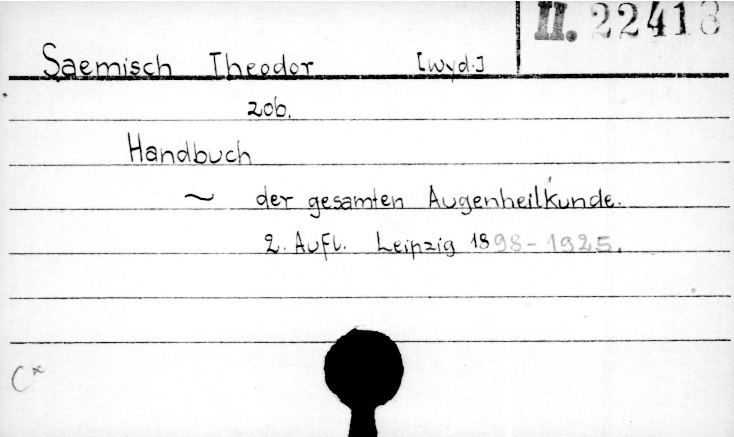 II. 22418
Saemisch Theodor [wyd.]
zob.
Handbuch
~ der gesamten Augenheilkunde.
2. Aufl. Leipzig 1898-1925.
C*